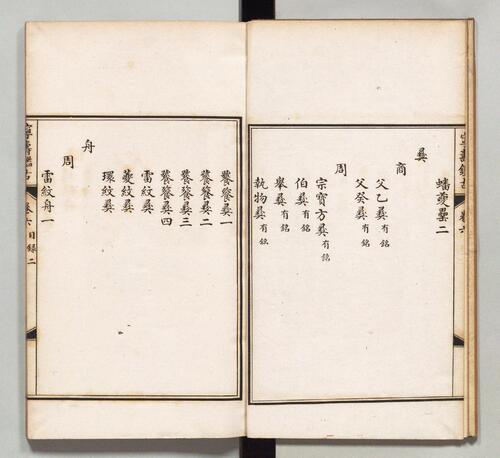 寧壽鑑古 卷六
蟠夔罍二
彝
商
父乙彝有銘
父癸彝有銘
周
宗寶方彝有銘
伯彝有銘
舉彝有銘
執物彝有銘
饕餮彝一
饕餮彝二
饕餮彝三
饕餮彝四
雷紋彝
夔紋彝
環紋彝
舟
周
雷紋舟一
寧壽鑑古 卷六目錄 二